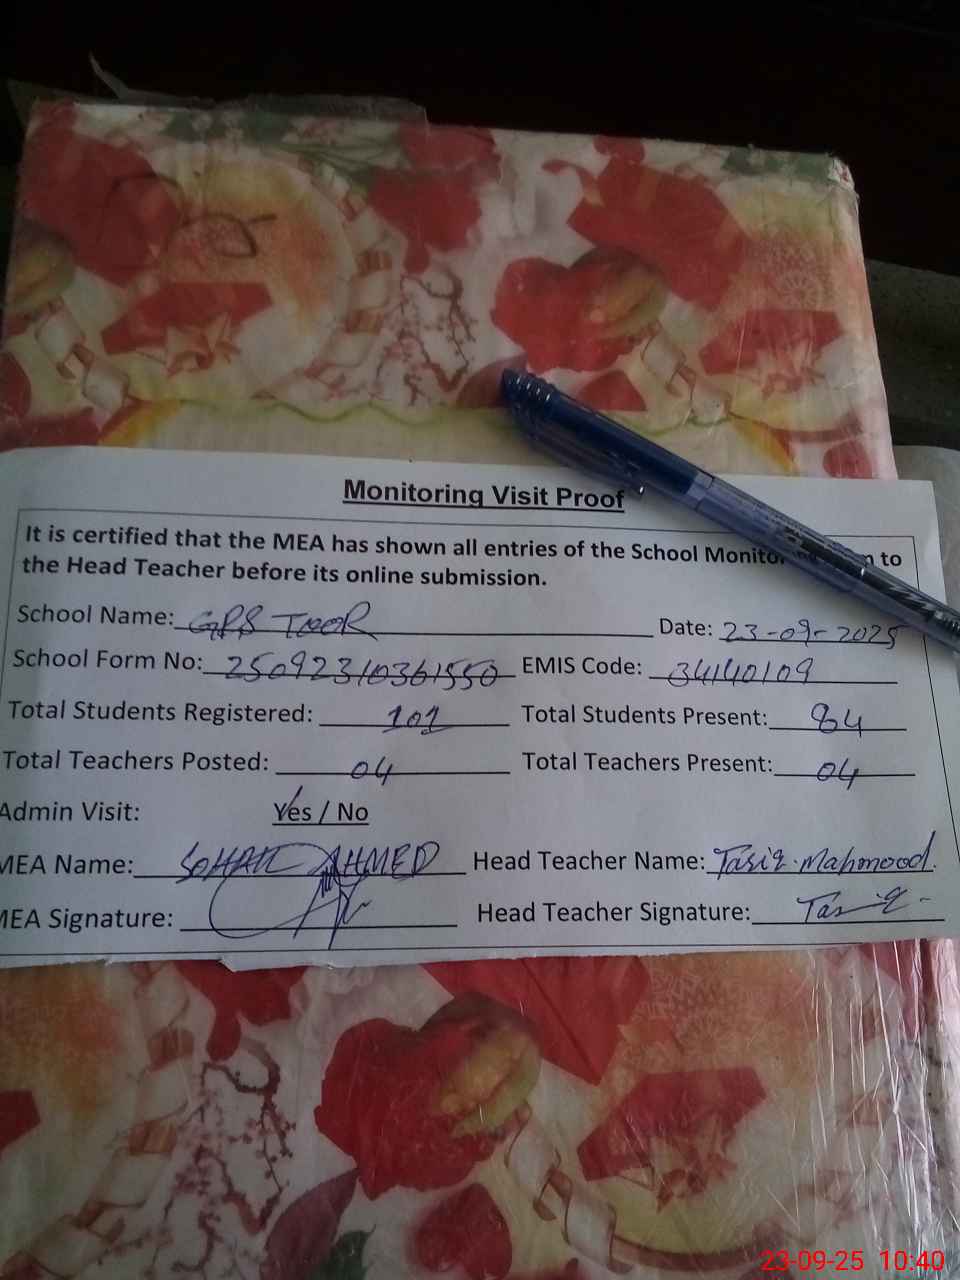 Monitoring Visit Proof
It is certified that the MEA has shown all entries of the School to
the Head Teacher before its online submission.
School Name: GPS TOOR Date: 23-09-2025
School Form No: 25092310361550 EMIS Code: 34140109
Total Students Registered: 101 Total Students Present: 84
Total Teachers Posted: 04 Total Teachers Present: 04
Admin Visit: Yes / No
MEA Name: SOHAIL AHMED Head Teacher Name: Tariq Mahmood.
MEA Signature: Head Teacher Signature: Tariq
23-09-25 10:40